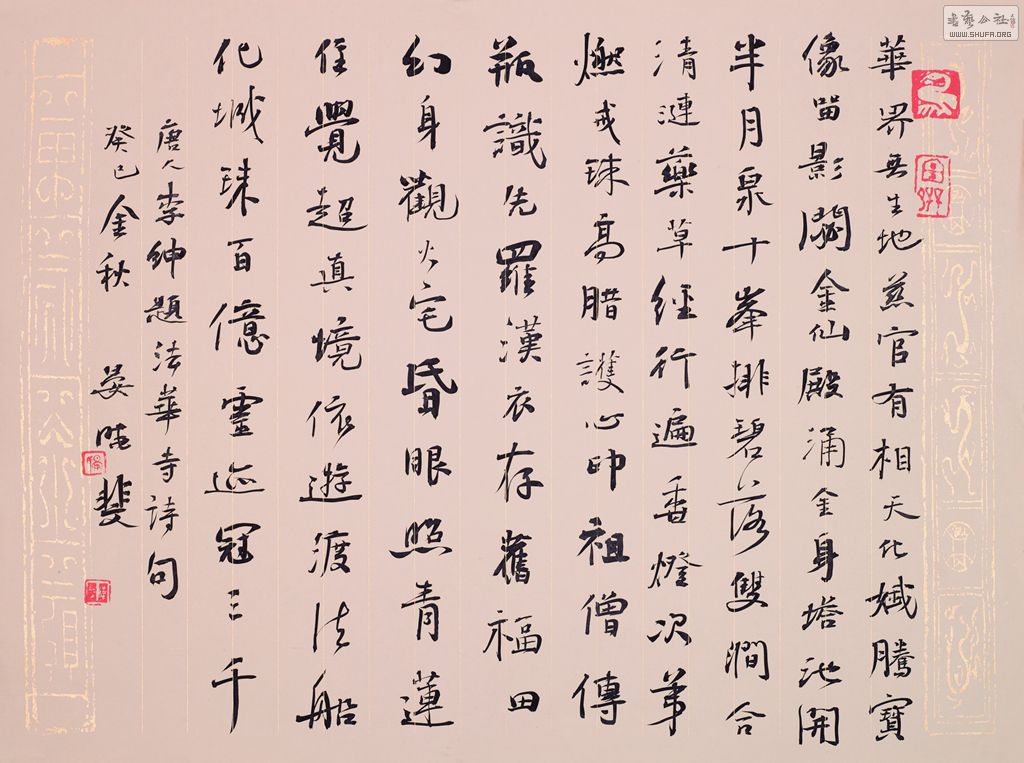 華界無生地慈官有相天化孅騰寶
像留影閟金仙殿涌金身塔池開
半月泉十峯排碧落雙澗合
清漣藥草經行遍香燈次第
燃戒珠高腊護心印祖僧傳
瓶識先羅漢衣存舊福田
幻身觀火宅昏眼照青蓮
住覺超真境依遊渡法船
化城珠百億靈迹冠三千
唐人李紳題法華寺詩句
癸巳金秋 晏
書藝公社
WWW.SHUFA.ORG